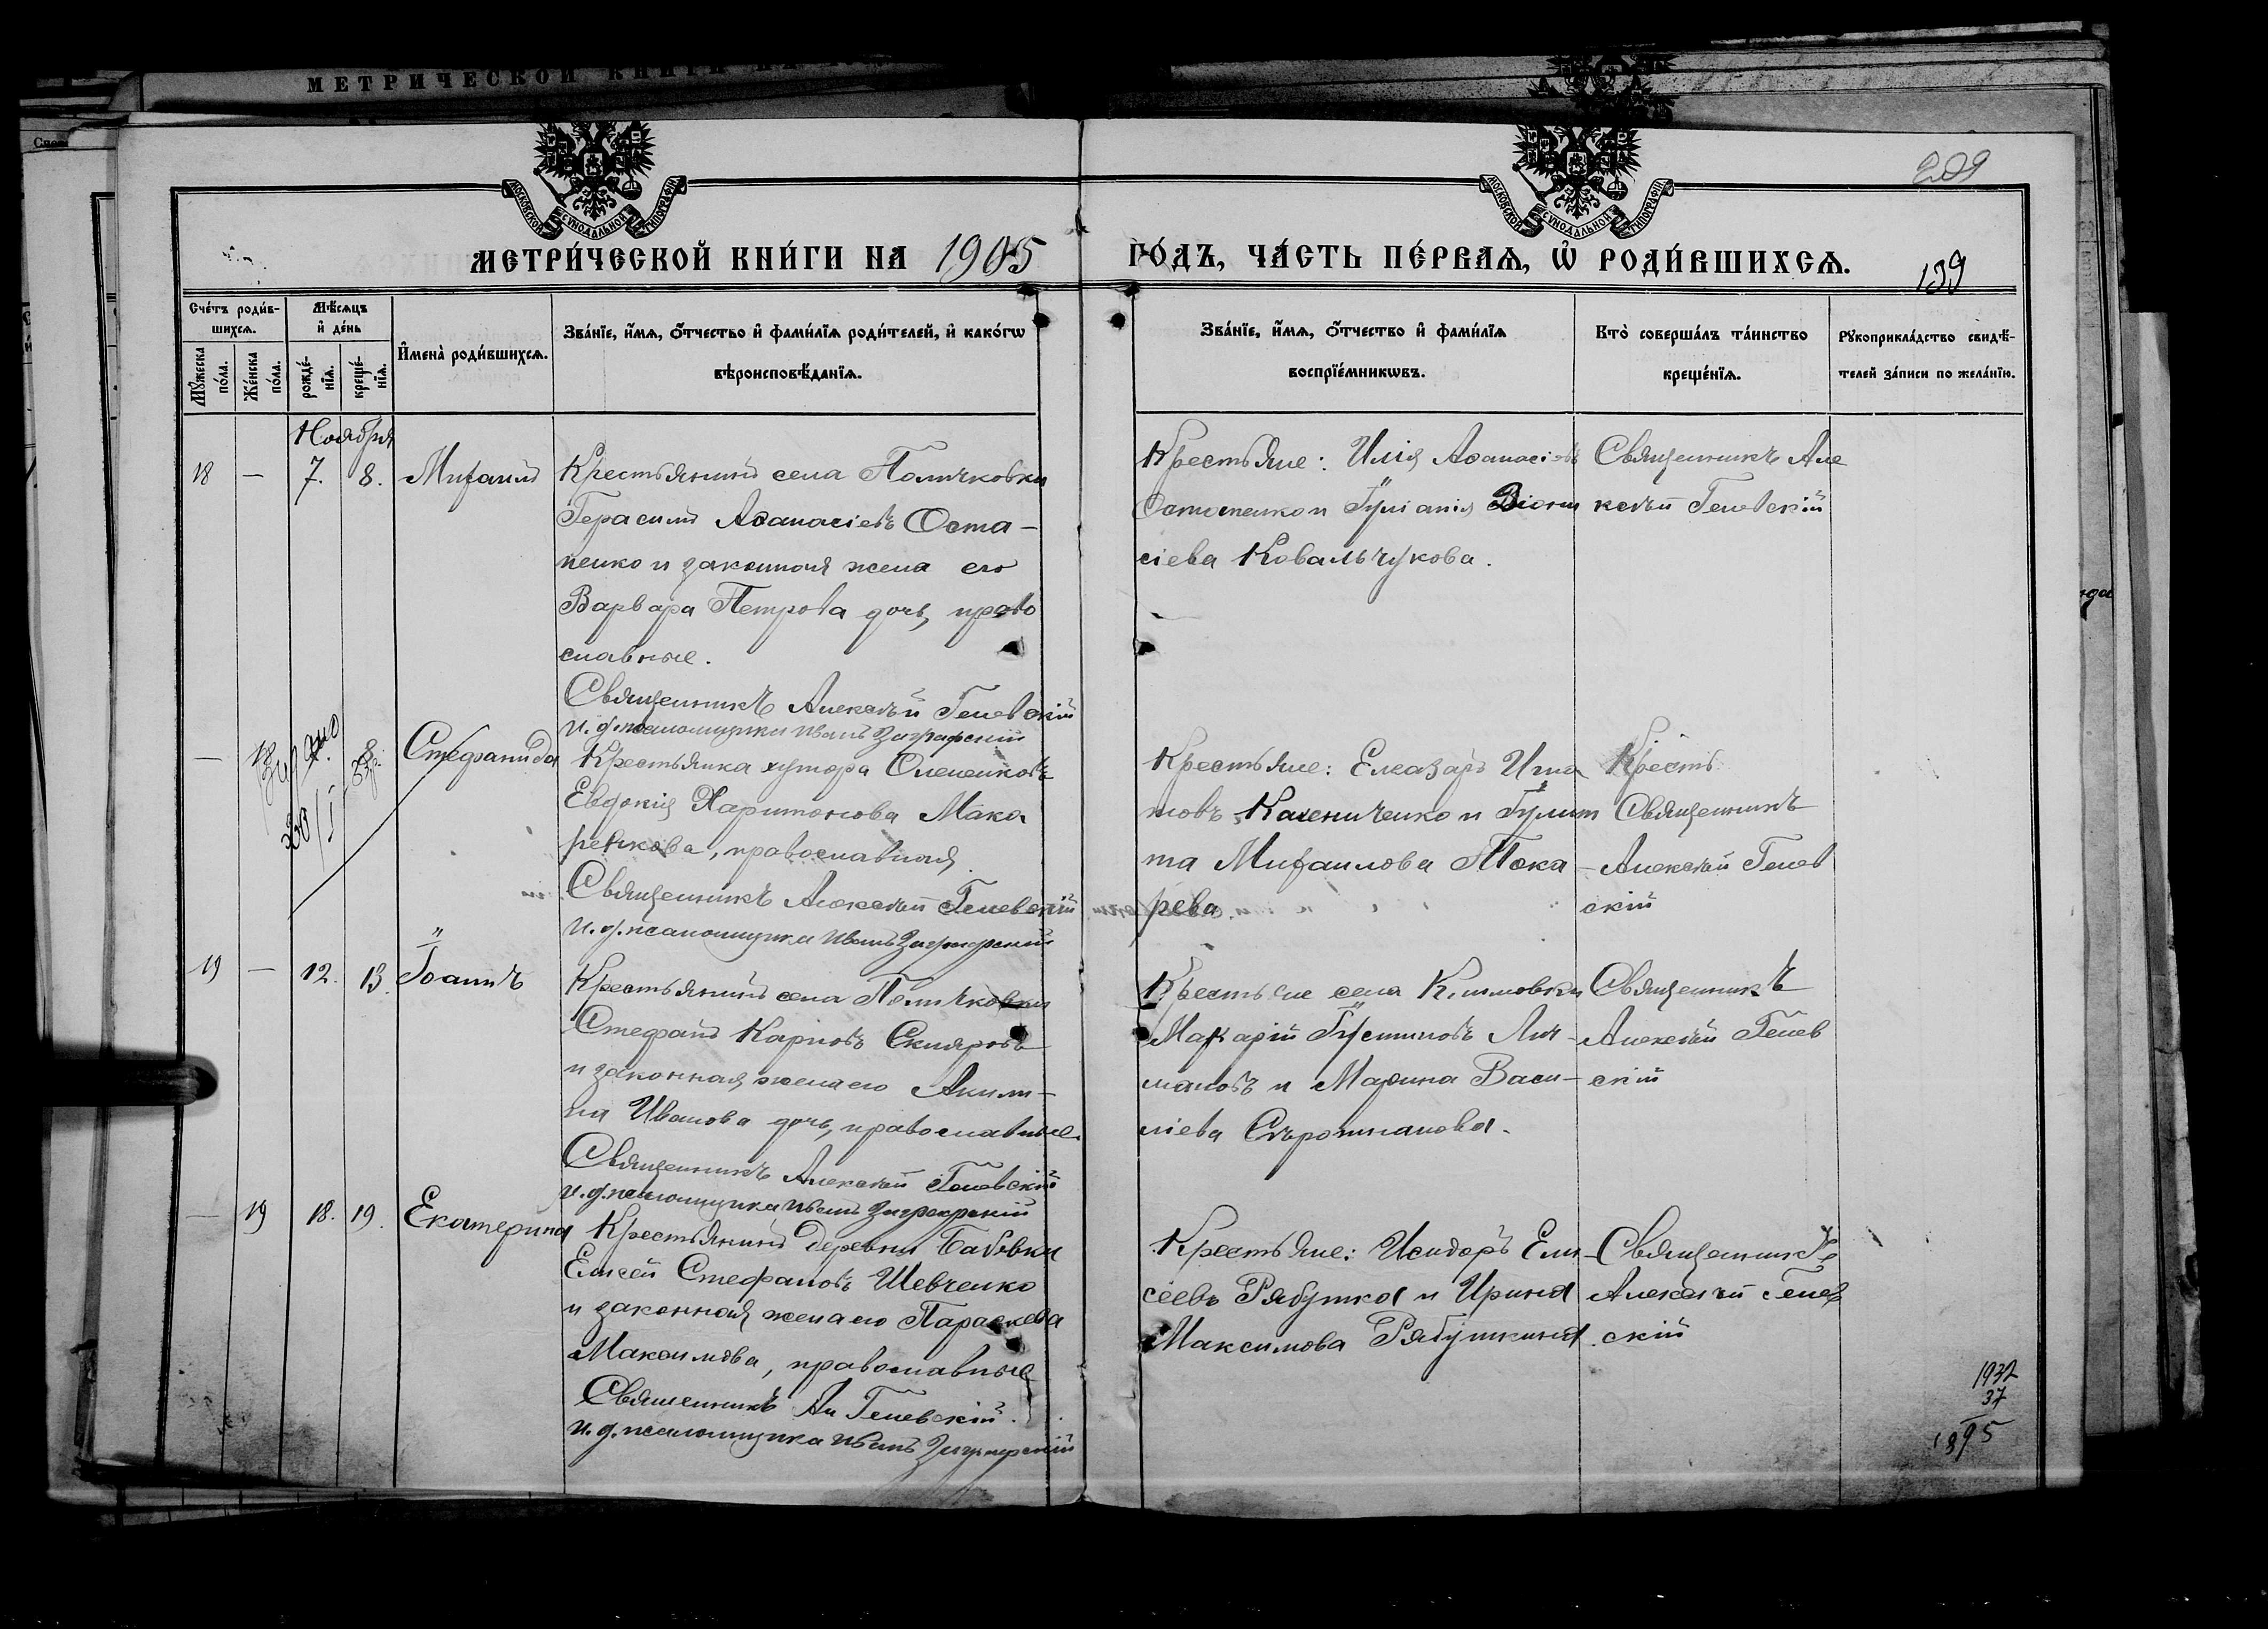 МЕТРИЧЕСКОЙ КНИГИ НА
209
МОСКОВСКОЙ СѴНОДАЛЬНОЙ ТИПОГРАФІИ
МОСКОВСКОЙ СѴНОДАЛЬНОЙ ТИПОГРАФІИ
МЕТРИ́ЧЕСКОЙ КНИ́ГИ НА 1905 ГО́ДЪ, ЧА́СТЬ ПЕ́РВАѦ, Ѽ РОДИ́ВШИХСѦ.
139
Сче́тъ роди́в-
шихсѧ.
Мꙋ́жеска по́ла.
Же́нска по́ла.
Мѣ́сѧцъ
и҆ де́нь
рожде́-
нїѧ.
креще́-
нїѧ.
И҆мена̀ роди́вшихсѧ.
Зва́нїе, и҆́мѧ, ѻ҆́тчество и҆ фами́лїѧ роди́телей, и҆ како́гѡ
вѣроисповѣ́данїѧ.
Зва́нїе, и҆́мѧ, ѻ҆́тчество и҆ фами́лїѧ
воспрїе́мникѡвъ.
Кто̀ соверша́лъ та́инство
креще́нїѧ.
Рꙋкоприкла́дство свидѣ́-
телей за́писи по жела́нїю.
Ноября
18 — 7. 8. Михаилъ
Крестьянинъ села Поличковки
Герасимъ Аѳанасіевъ Оста-
пенко и законная жена его
Варвара Петрова дочь, право
славные.
Священникъ Алексѣй Геневскій
и. д. псаломщика Иванъ
Крестьяне: Илія Аѳанасіевъ
Остапенко и Іуліанія
сіева Ковальчукова.
Священникъ Але
ксѣй Геневскій
— 18 8. Стефанида
Крестьянка хутора
Евдокія Харитонова Мака
ренкова, православная
Священникъ Алексѣй Геневскій
и. д. псаломщика Иванъ
Крестьяне: Елеазаръ Игна
товъ Калениченко и Іулит
та Михаилова Тока-
рева
Крест.
Священникъ
Алексѣй Генев
скій
19 — 12. 13. Іоаннъ
Крестьянинъ села Поличковки
Стефанъ Карповъ Скляровъ
и законная жена его Акили-
на Иванова дочь, православные.
Священникъ Алексѣй Геневскій
и. д. псаломщика Иванъ
Крестьяне села Климовки
Макарій Іустиновъ Лит-
мановъ и Марина Васи-
ліева
Священникъ
Алексѣй Генев
скій
— 19 18. 19. Екатерина
Крестьянинъ деревни Бабовки
Елисей Стефановъ Шевченко
и законная жена его Параскева
Максимова, православные
Священникъ Ал Геневскій.
и. д. псаломщика Иванъ
Крестьяне: Исидоръ Ели-
сеевъ Рябушка и Ирина
Максимова Рябушкина.
Священникъ
Алексѣй Генев
скій
1932
37
1895